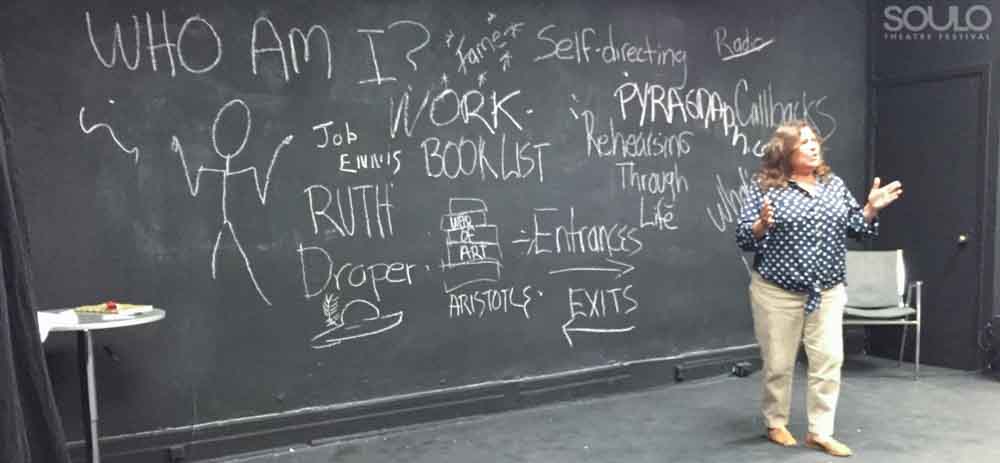 SOULO
THEATRE FESTIVAL
WHO AM I?
Fame
Self-directing
Radio
WORK
Callbacks
Job
ENNIS
BOOKLIST
Rehearsing
Through
Life
RUTH
Draper
WAR
OF
ART
ARISTOTLE
Entrances
EXITS